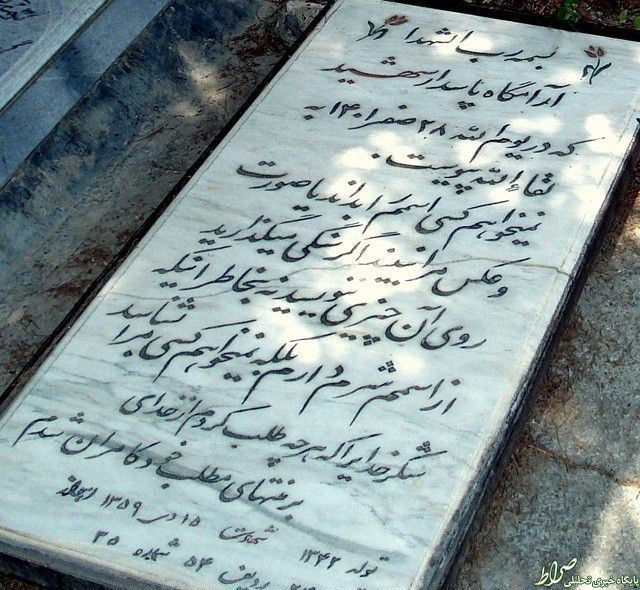 بسمه رب الشهدا
آرامگاه پاسدار شهید
که در یوم الله ۲۸ صفر ۱۴۰۱ به
لقاءالله پیوست.
نمیخواهم کسی اسمم را بداند یا صورت
و عکس مرا ببیند اگر سنگی میگذارید
روی آن چیزی ننویسید نه بخاطر اینکه
از اسمم شرم دارم بلکه نمیخواهم کسی مرا بشناسد
شکر خدا را که هر چه طلب کردم از خدای
بر منتهای مطلب خود کامران شدم
تولد ۱۳۴۲ شهادت ۱۵ دی ۱۳۵۹
ردیف ۵۴ شماره ۲۵
صراط
پایگاه خبری تحلیلی